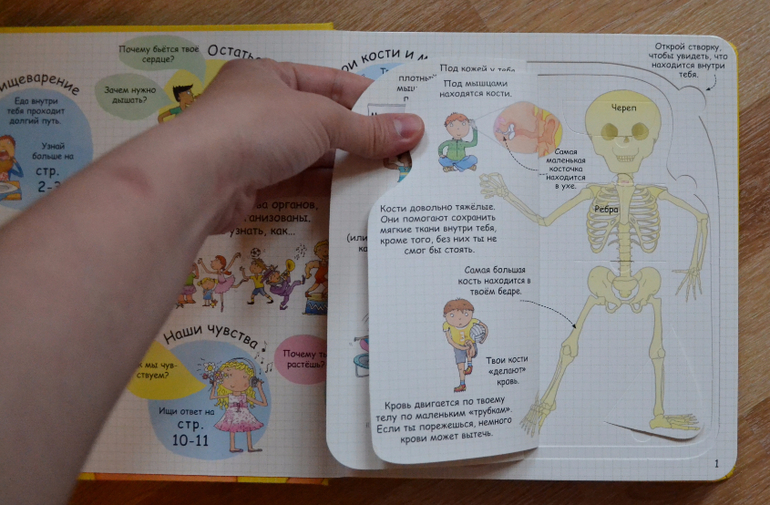 Почему бьётся твоё
сердце?
Зачем нужно
дышать?
Еда внутри
тебя проходит
долгий путь.
Узнай
больше на
стр.
органов,
узнать, как...
Наши чувства
Почему
растёшь?
Ищи ответ на
стр.
10-11
кости и
Под кожей у тебя
Под мышцами
находятся кости.
Самая
маленькая
косточка
находится
в ухе.
Кости довольно тяжёлые.
Они помогают сохранить
мягкие ткани внутри тебя,
кроме того, без них ты не
смог бы стоять.
Самая большая
кость находится в
твоём бедре.
Твои кости
«делают»
кровь.
Кровь двигается по твоему
телу по маленьким «трубкам».
Если ты порежешься, немного
крови может вытечь.
Открой створку,
чтобы увидеть, что
находится внутри
тебя.
Череп
Ребра
1